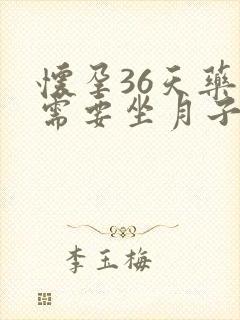 怀孕36天药
需要坐月子
李玉梅